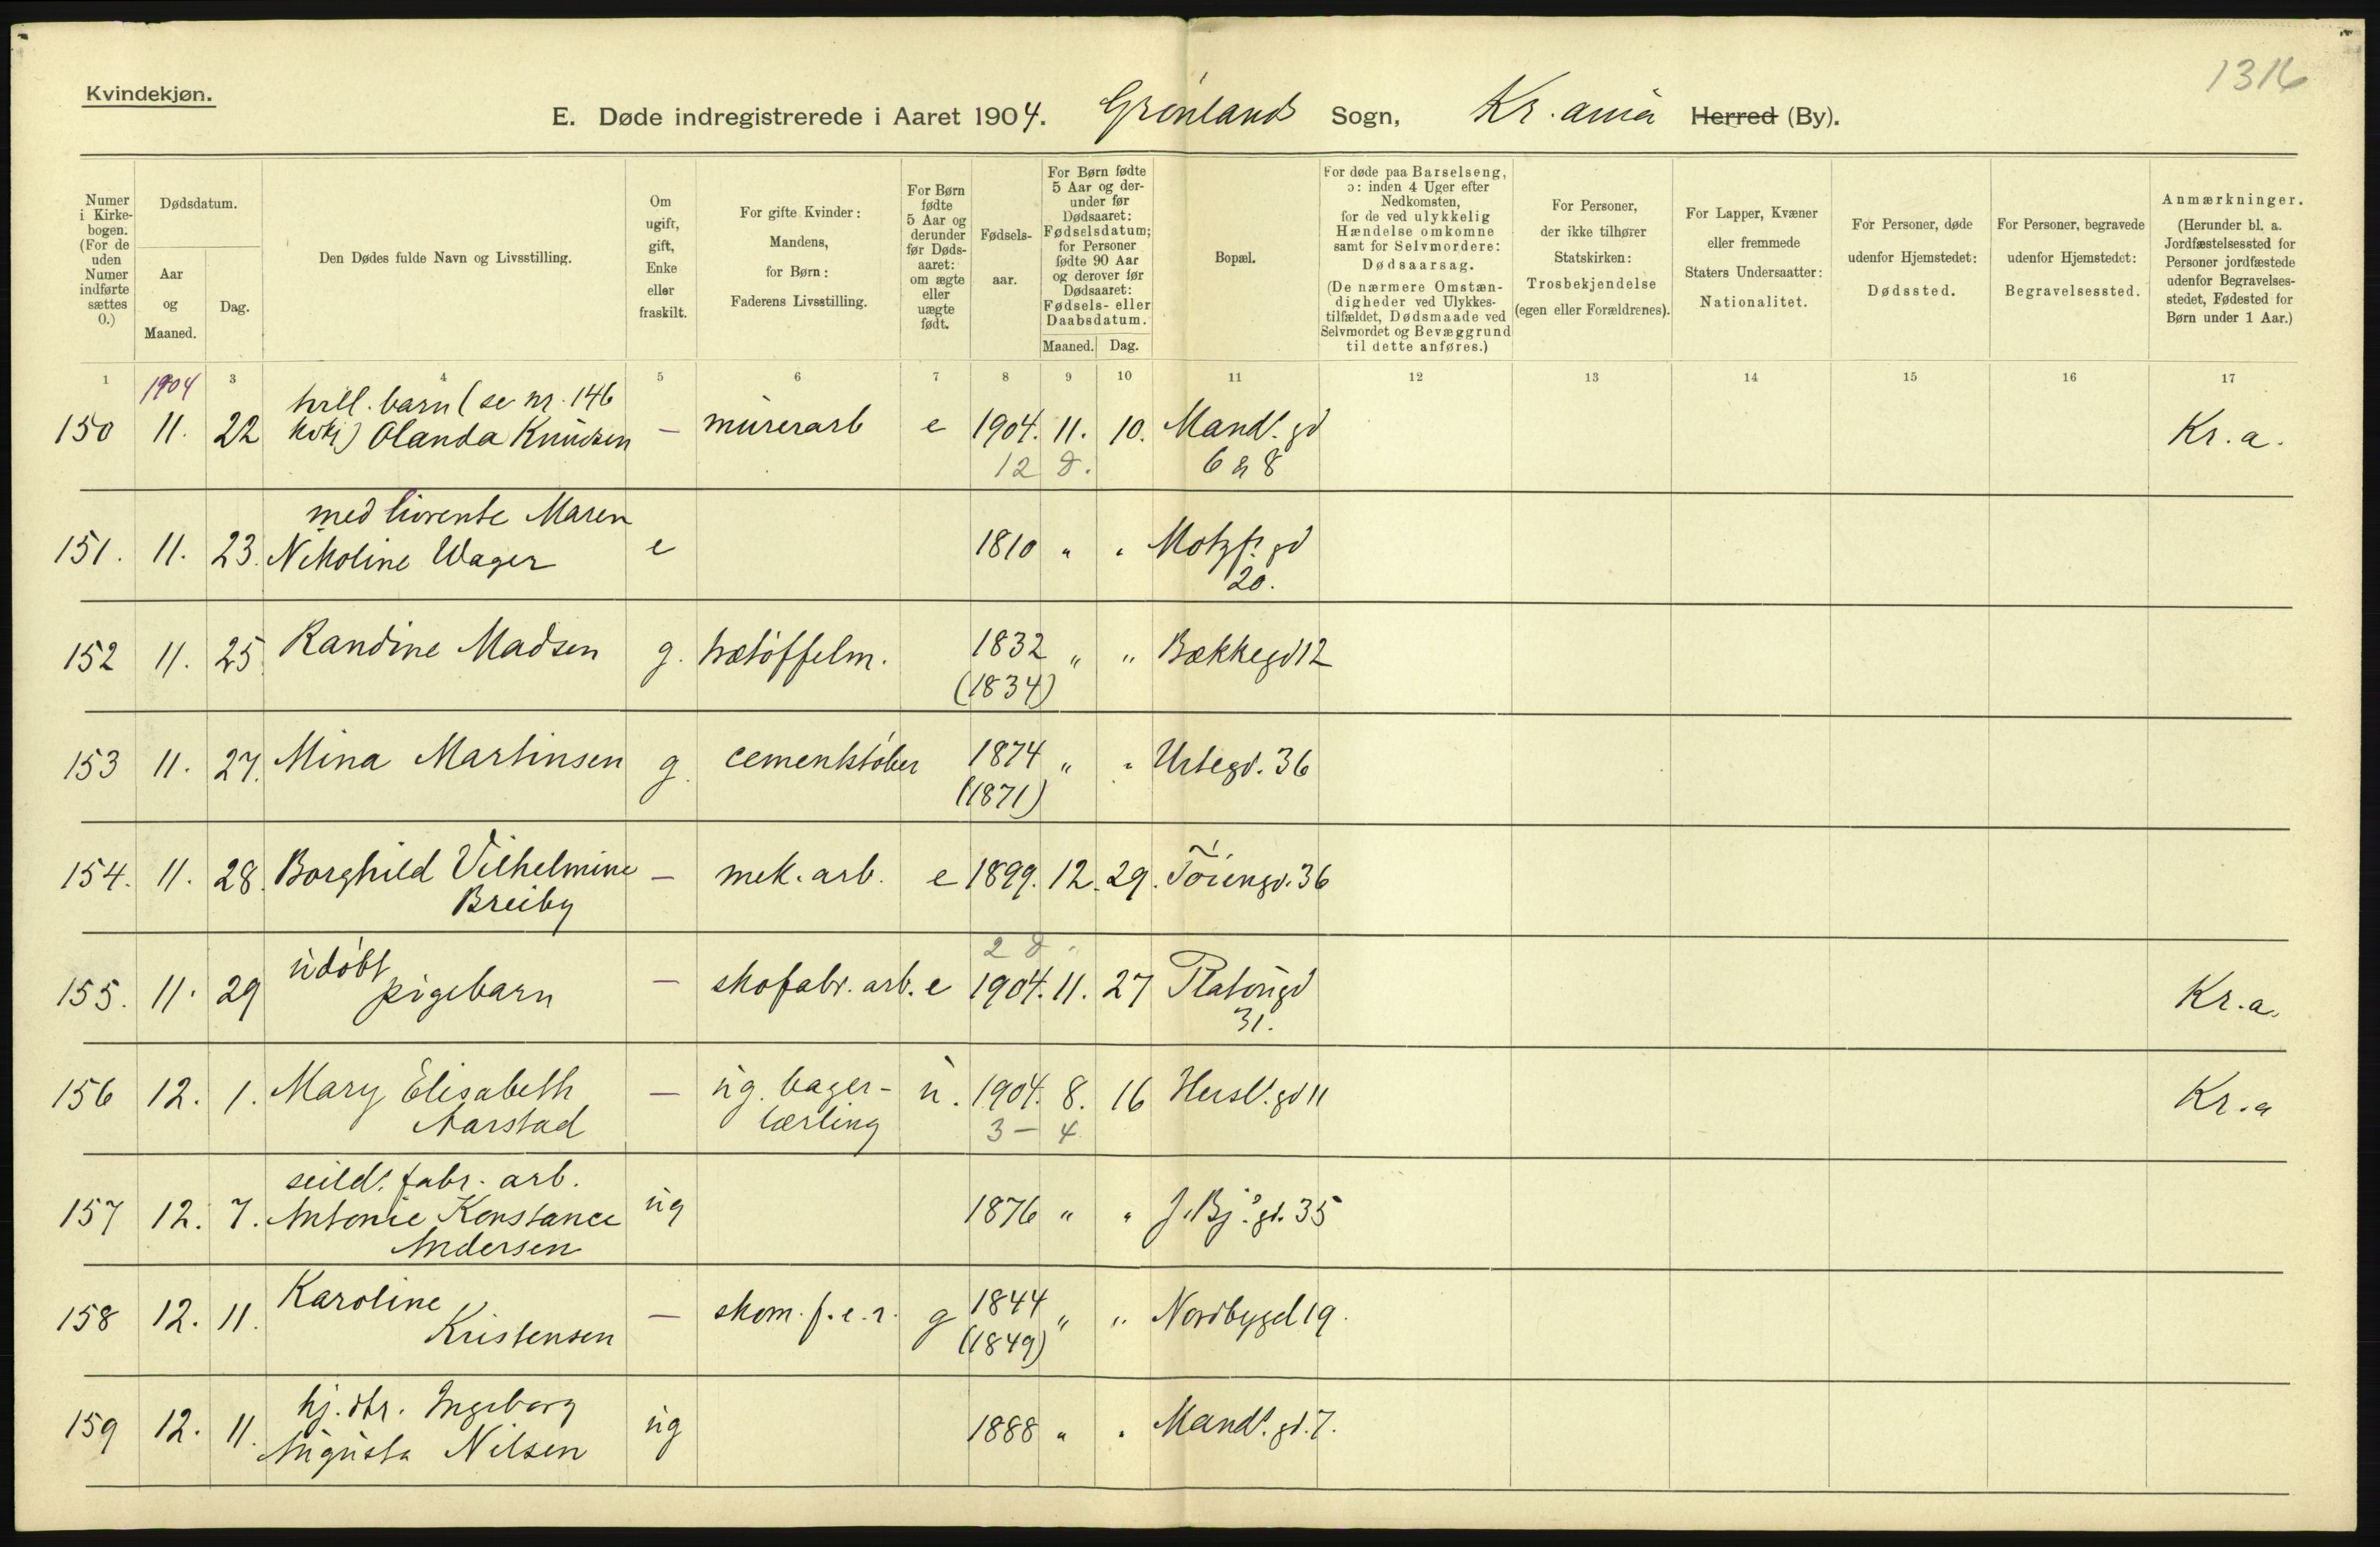 1316
Kvindekjøn.
E. Døde indregistrerede i Aaret 1904. Grønlands Sogn, Kr.ania Herred (By).
Numer i Kirkebogen. (For de uden Numer indførte sættes 0.)
Dødsdatum.
Aar og Maaned.
Dag.
Den Dødes fulde Navn og Livsstilling.
Om ugift, gift, Enke eller fraskilt.
For gifte Kvinder: Mandens, for Børn: Faderens Livsstilling.
For Børn fødte 5 Aar og derunder før Dødsaaret: om ægte eller uægte født.
Fødselsaar.
For Børn fødte 5 Aar og derunder før Dødsaaret: Fødselsdatum; for Personer fødte 90 Aar og derover før Dødsaaret: Fødsels- eller Daabsdatum.
Maaned. Dag.
Bopæl.
For døde paa Barselseng, ɔ: inden 4 Uger efter Nedkomsten, for de ved ulykkelig Hændelse omkomne samt for Selvmordere: Dødsaarsag. (De nærmere Omstændigheder ved Ulykkestilfældet, Dødsmaade ved Selvmordet og Bevæggrund til dette anføres.)
For Personer, der ikke tilhører Statskirken: Trosbekjendelse (egen eller Forældrenes).
For Lapper, Kvæner eller fremmede Staters Undersaatter: Nationalitet.
For Personer, døde udenfor Hjemstedet: Dødssted.
For Personer, begravede udenfor Hjemstedet: Begravelsessted.
Anmærkninger. (Herunder bl. a. Jordfæstelsessted for Personer jordfæstede udenfor Begravelsesstedet, Fødested for Børn under 1 Aar.)
1 3 4 5 6 7 8 9 10 11 12 13 14 15 16 17
1904
tvill. barn (se nr. 146
150 11. 22 Olanda Knudsen — murerarb e 1904. 11. 10. Mands. gd Kr. a.
12 d. 6 & 8
med livrente Maren
151. 11. 23. Nikoline Wager e 1810 " " Motzf. gd
20.
152 11. 25. Randine Madsen g. trætøffelm. 1832 " " Bækkegd 12
(1834)
153 11. 27. Mina Martinsen g. cementstøber 1874 " " Urtegd. 36
(1871)
154. 11. 28. Borghild Vilhelmine — mek. arb. e 1899. 12. 29. Tøiengd. 36
Breiby
2 d.
155. 11. 29 udøbt pigebarn — skofabr. arb. e 1904. 11. 27 Platougd Kr. a.
31.
156 12. 1. Mary Elisabeth — ug. bager- u. 1904. 8. 16 Hersl. gd 11 Kr. a
Aarstad lærling 3 - 4
seild. fabr. arb.
157 12. 7. Antonie Konstance ug 1876 " " J. Bj. gd. 35
Andersen
158 12. 11. Karoline — skom. f. e. r. g 1844 " " Nordbygd 19.
Kristensen (1849)
hj. dtr. Ingeborg
159 12. 11. Augusta Nilsen ug 1888 " " Mands. gd. 7.